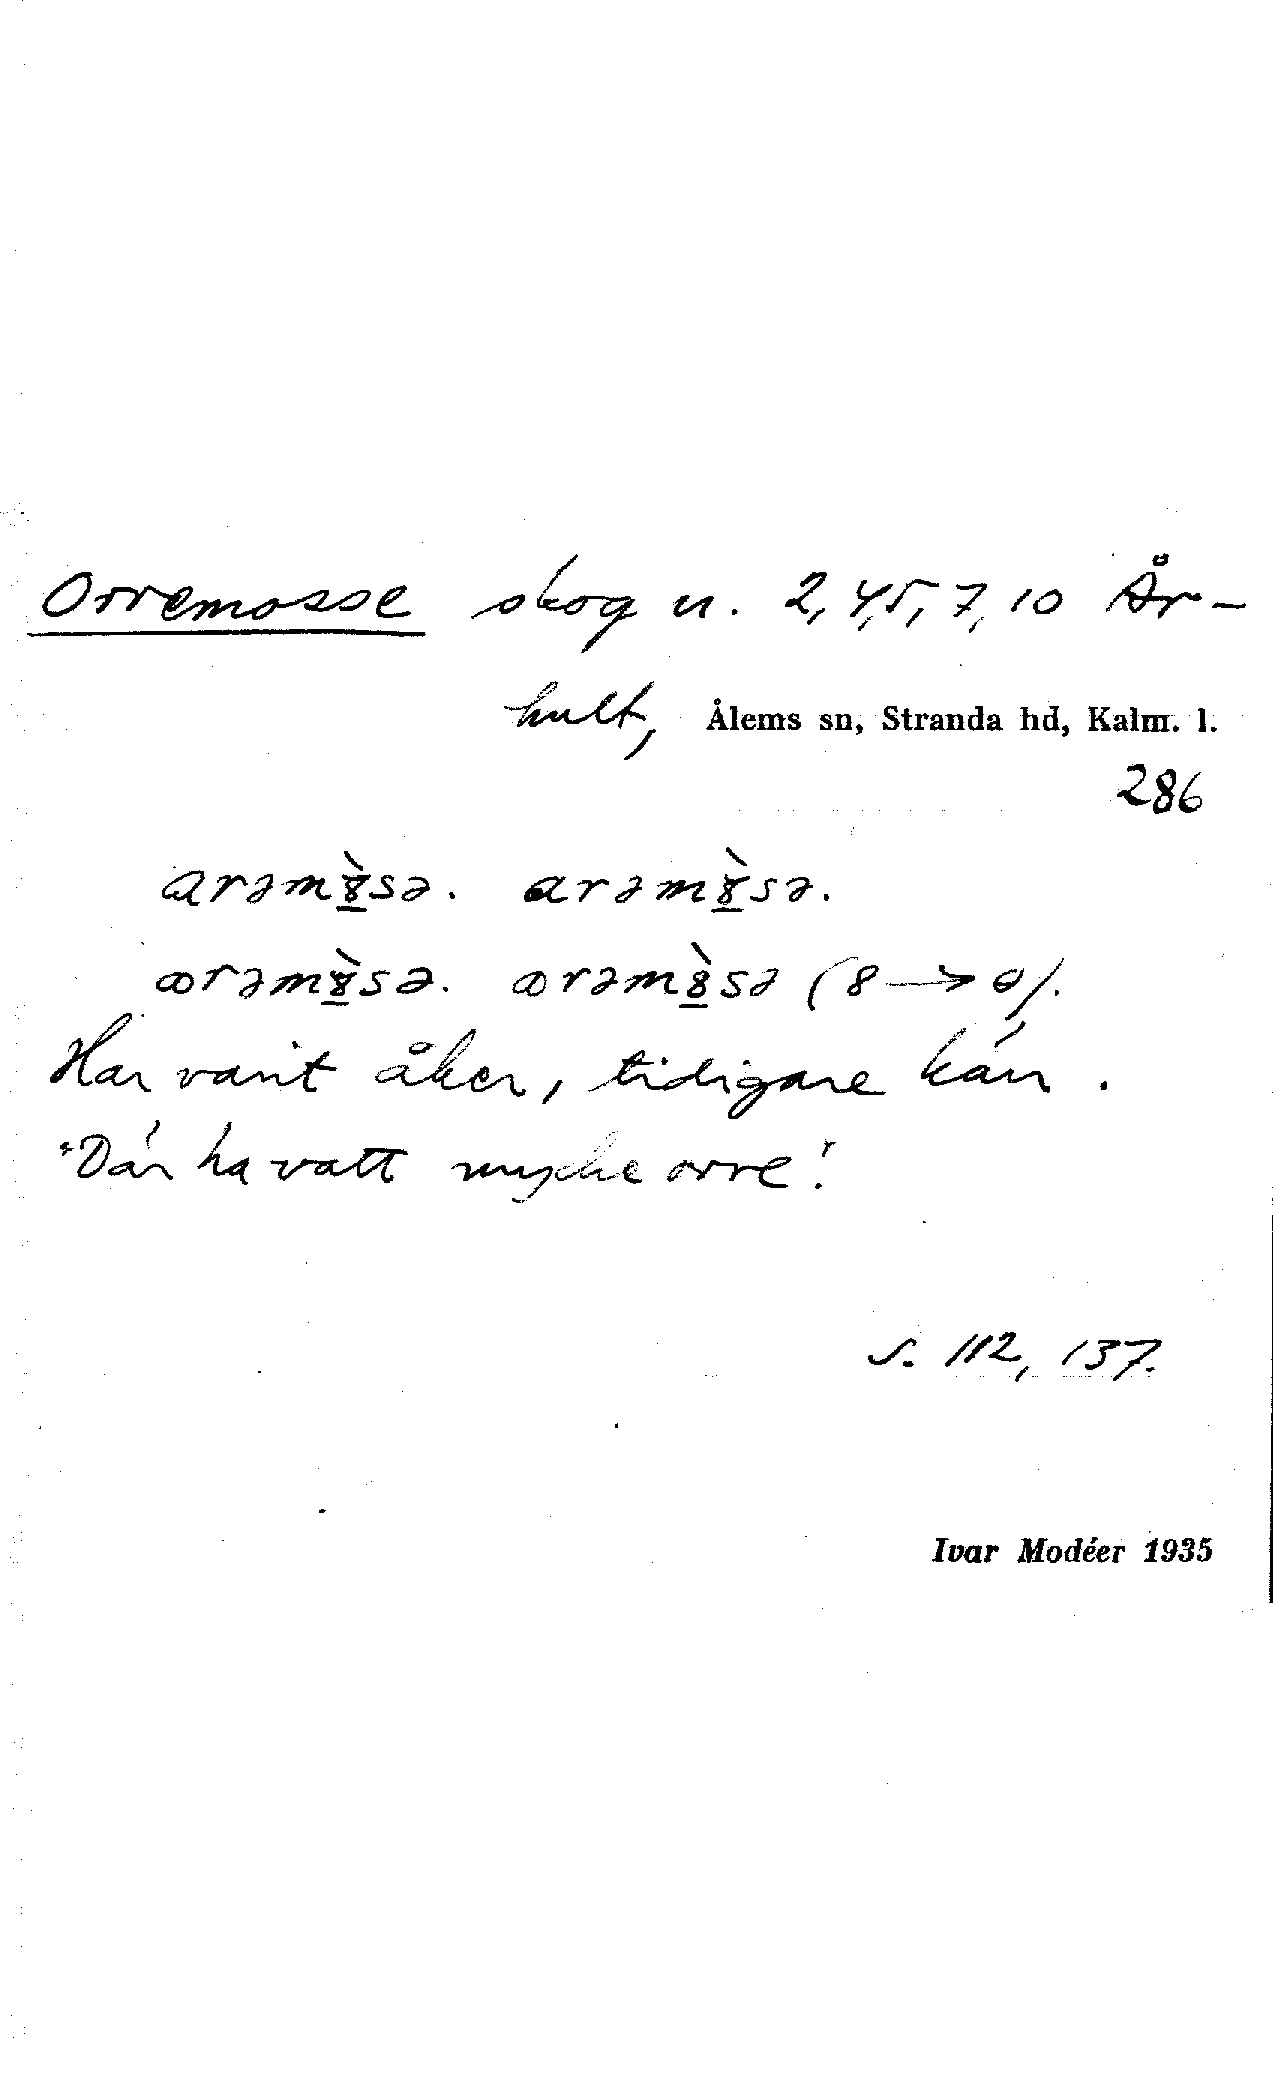 Orremosse skog n. 2, 4, 5, 7, 10 År-
hult, Ålems sn, Stranda hd, Kalm. l.
286
arəm8̀sə. arəm8̀sə.
ꝏrəm8̀sə. ꝏrəm8̀sə (8 → ɵ).
Har varit åker, tidigare kärr.
"Där ha vatt mycke orre".
S. 112, 137.
Ivar Modéer 1935